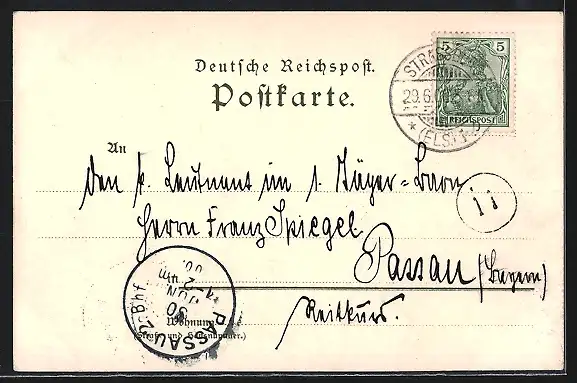 Deutsche Reichspost.
Postkarte.
5 5
REICHSPOST
STRASSBURG
29.6.
* (ELS) 1
An
den k. Leutnant im 1. Jäger-Baon
Herrn Franz Spiegel
11
Passau (Bayern)
Reitkurs.
Wohnung
(Straße und Hausnummer.)
PASSAU 2. Bhf.
30
JUN